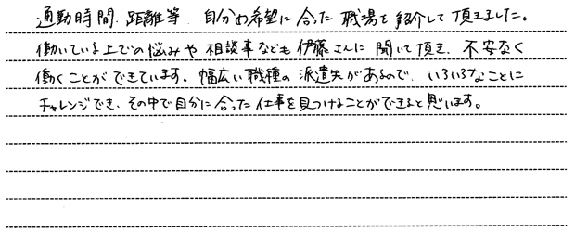 通勤時間、距離等、自分の希望に合った職場を紹介して頂きました。
働いている上での悩みや相談事なども伊藤さんに聞いて頂き、不安なく
働くことができています。幅広い職種の派遣先があるので、いろいろなことに
チャレンジでき、その中で自分に合った仕事を見つけることができると思います。